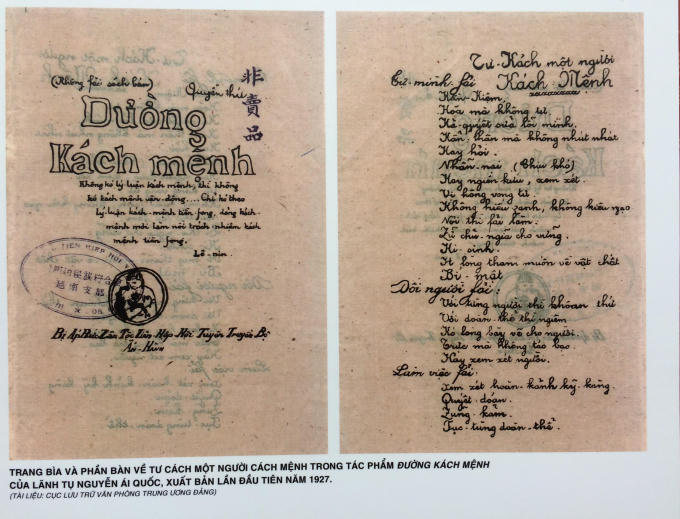 (Không fải sách bán)
Quyển thứ
非賣品
Đường
Kách mệnh
Không kó lý luận kách mệnh, thì không
kó kách mệnh vận-động.... Chỉ kó theo
lý luận kách-mệnh tiền fong, đảng kách-
mệnh mới làm nổi trách-nhiệm kách
mệnh tiền fong.
Lê-nin.
TIEN HIEP HOI
越南支部
Bị Áp Bức Zân Tộc Liên Hợp Hội Tuyên Truyền Bộ
Ấn-Hành
Tư-Kách một người
Kách-Mệnh
Tự mình fải
Kần-Kiệm.
Hòa mà không tư.
Kả-quyết sửa lỗi mình.
Kẩn thận mà không nhút nhát
Hay hỏi.
Nhẫn-nại (Chịu khó)
Hay ngiên kứu, xem xét.
Vị kông vong tư.
Không hiếu zanh, không kiêu ngạo
Nói thì fải làm.
Zữ chủ-ngĩa cho vững.
Hi-sinh.
Ít lòng tham muốn về vật chất
Bí-mật
Đối người fải:
Với từng người thì khoan thứ
Với đoàn thể thì ngiêm
Kó lòng bày vẽ cho người.
Trực mà không táo bạo.
Hay xem xét người.
Làm việc fải:
Xem xét hoàn-kảnh kỹ-kàng.
Quyết-đoán.
Zũng-kảm.
Fục-tùng đoàn-thể.
TRANG BÌA VÀ PHẦN BÀN VỀ TƯ CÁCH MỘT NGƯỜI CÁCH MỆNH TRONG TÁC PHẨM ĐƯỜNG KÁCH MỆNH
CỦA LÃNH TỤ NGUYỄN ÁI QUỐC, XUẤT BẢN LẦN ĐẦU TIÊN NĂM 1927.
(TÀI LIỆU: CỤC LƯU TRỮ VĂN PHÒNG TRUNG ƯƠNG ĐẢNG)